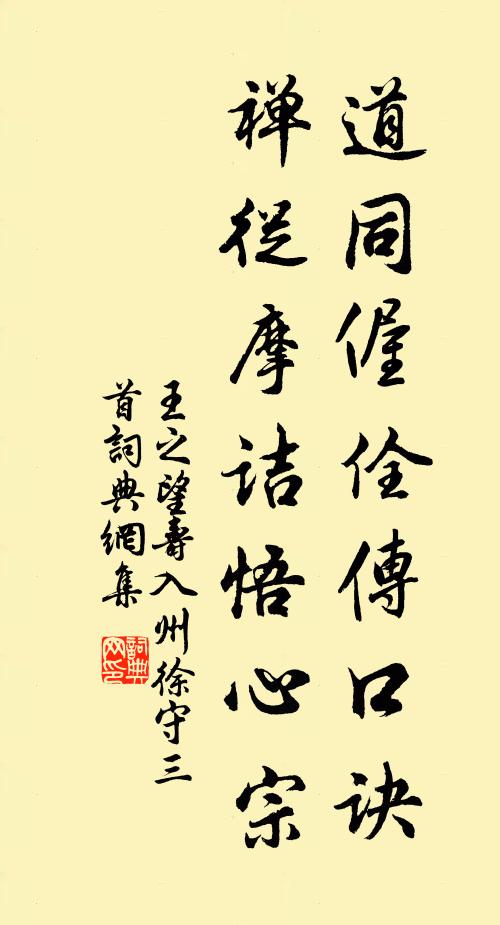 道同偓佺傳口訣
禪從摩詰悟心宗
王之望壽入州徐守三
首詞典網集
詞典網印